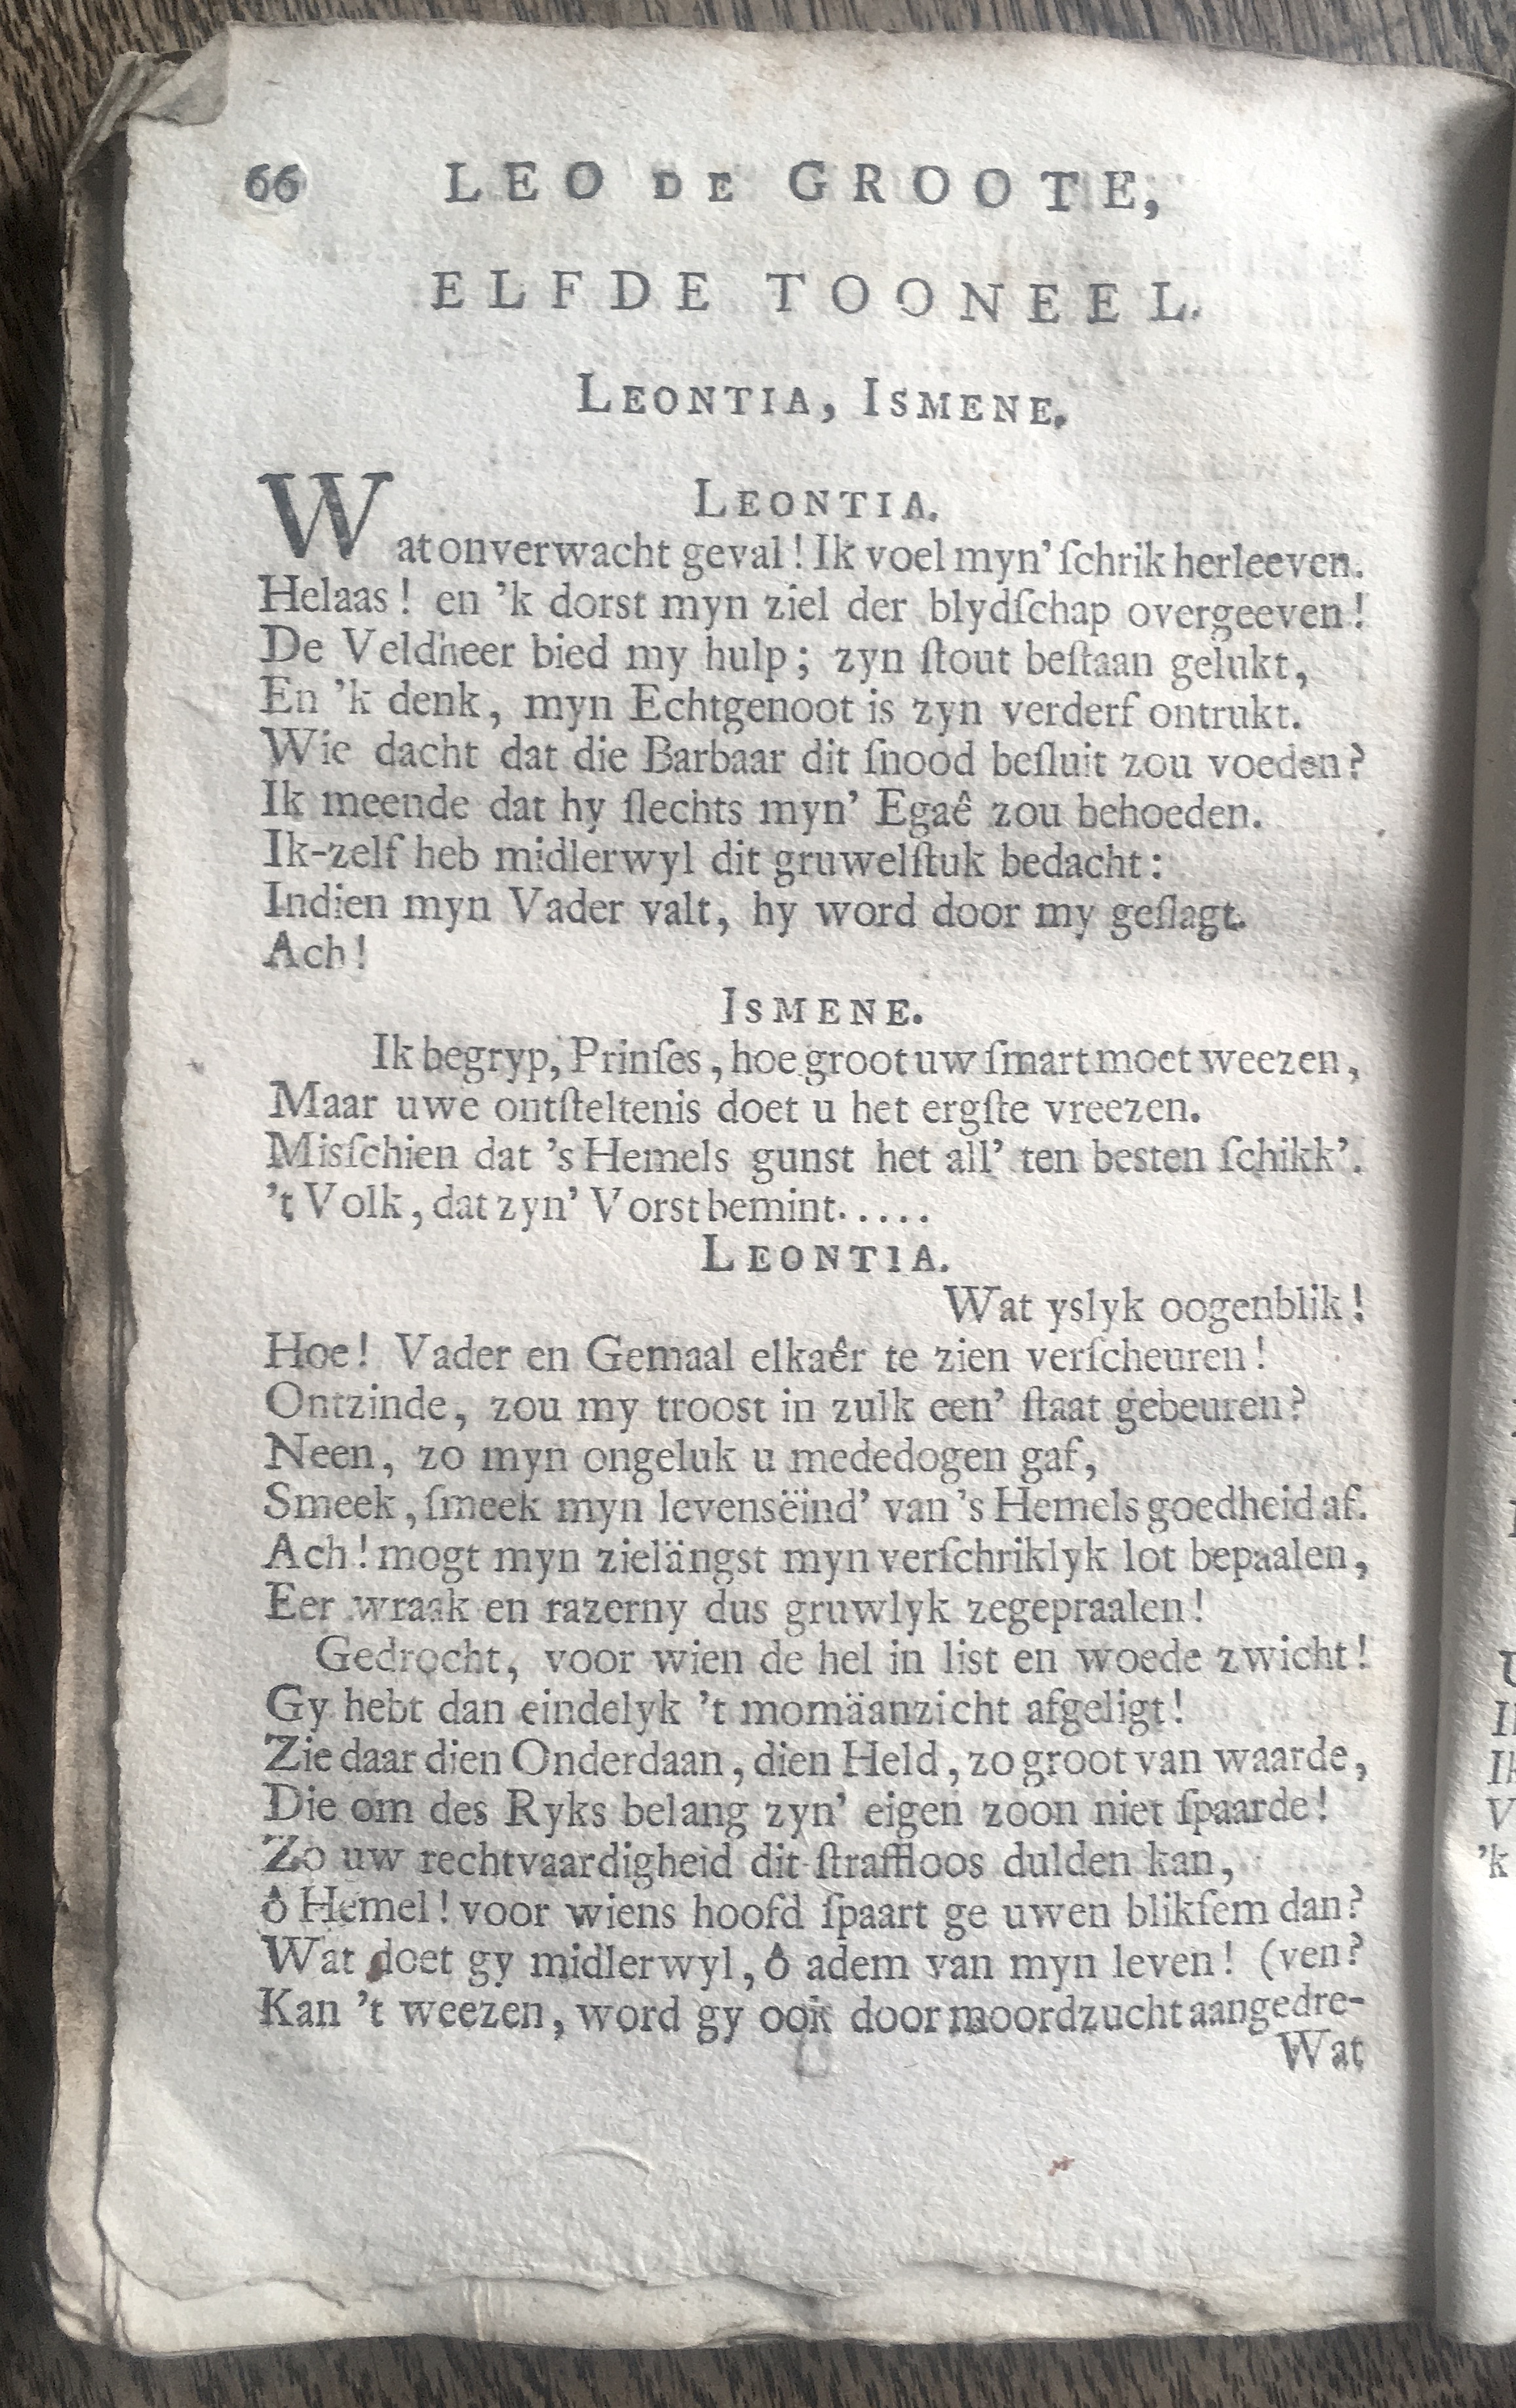 66 LEO DE GROOTE,
ELFDE TOONEEL.
LEONTIA, ISMENE.
LEONTIA.
Wat onverwacht geval! Ik voel myn' ſchrik herleeven.
Helaas! en 'k dorst myn ziel der blydſchap overgeeven!
De Veldheer bied my hulp; zyn ſtout beſtaan gelukt,
En 'k denk, myn Echtgenoot is zyn verderf ontrukt.
Wie dacht dat die Barbaar dit ſnood beſluit zou voeden?
Ik meende dat hy ſlechts myn' Egaê zou behoeden.
Ik-zelf heb midlerwyl dit gruwelſtuk bedacht:
Indien myn Vader valt, hy word door my geſlagt.
Ach!
ISMENE.
Ik begryp, Prinſes, hoe groot uw ſmart moet weezen,
Maar uwe ontſteltenis doet u het ergſte vreezen.
Misſchien dat 's Hemels gunst het all' ten besten ſchikk'.
't Volk, dat zyn' Vorst bemint.....
LEONTIA.
Wat yslyk oogenblik!
Hoe! Vader en Gemaal elkaêr te zien verſcheuren!
Ontzinde, zou my troost in zulk een' ſtaat gebeuren?
Neen, zo myn ongeluk u mededogen gaf,
Smeek, ſmeek myn levensëind' van 's Hemels goedheid af.
Ach! mogt myn zielängst myn verſchriklyk lot bepaalen,
Eer wraak en razerny dus gruwlyk zegepraalen!
Gedrocht, voor wien de hel in list en woede zwicht!
Gy hebt dan eindelyk 't momäanzicht afgeligt!
Zie daar dien Onderdaan, dien Held, zo groot van waarde,
Die om des Ryks belang zyn' eigen zoon niet ſpaarde!
Zo uw rechtvaardigheid dit ſtraffloos dulden kan,
ô Hemel! voor wiens hoofd ſpaart ge uwen blikſem dan?
Wat doet gy midlerwyl, ô adem van myn leven! (ven?
Kan 't weezen, word gy ook door moordzucht aangedre-
Wat